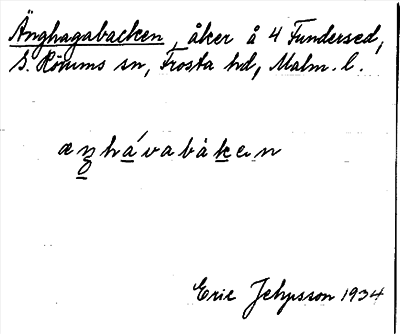 Änghagabacken, åker å 4 Fundersed,
S. Rörums sn, Frosta hd, Malm. l.
æŋhávabàken
Eric 1934